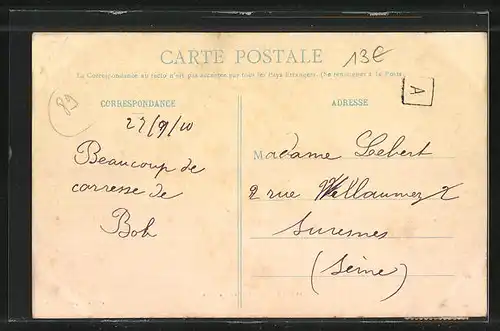 CARTE POSTALE
13€
La Correspondance au recto n'est pas acceptée par tous les Pays Etrangers. (Se renseigner à la Poste)
89
A
CORRESPONDANCE
ADRESSE
27/9/10
Beaucoup de
carresse de
Bob
Madame Lebert
2 rue Willaumez 2
Suresnes
(Seine)